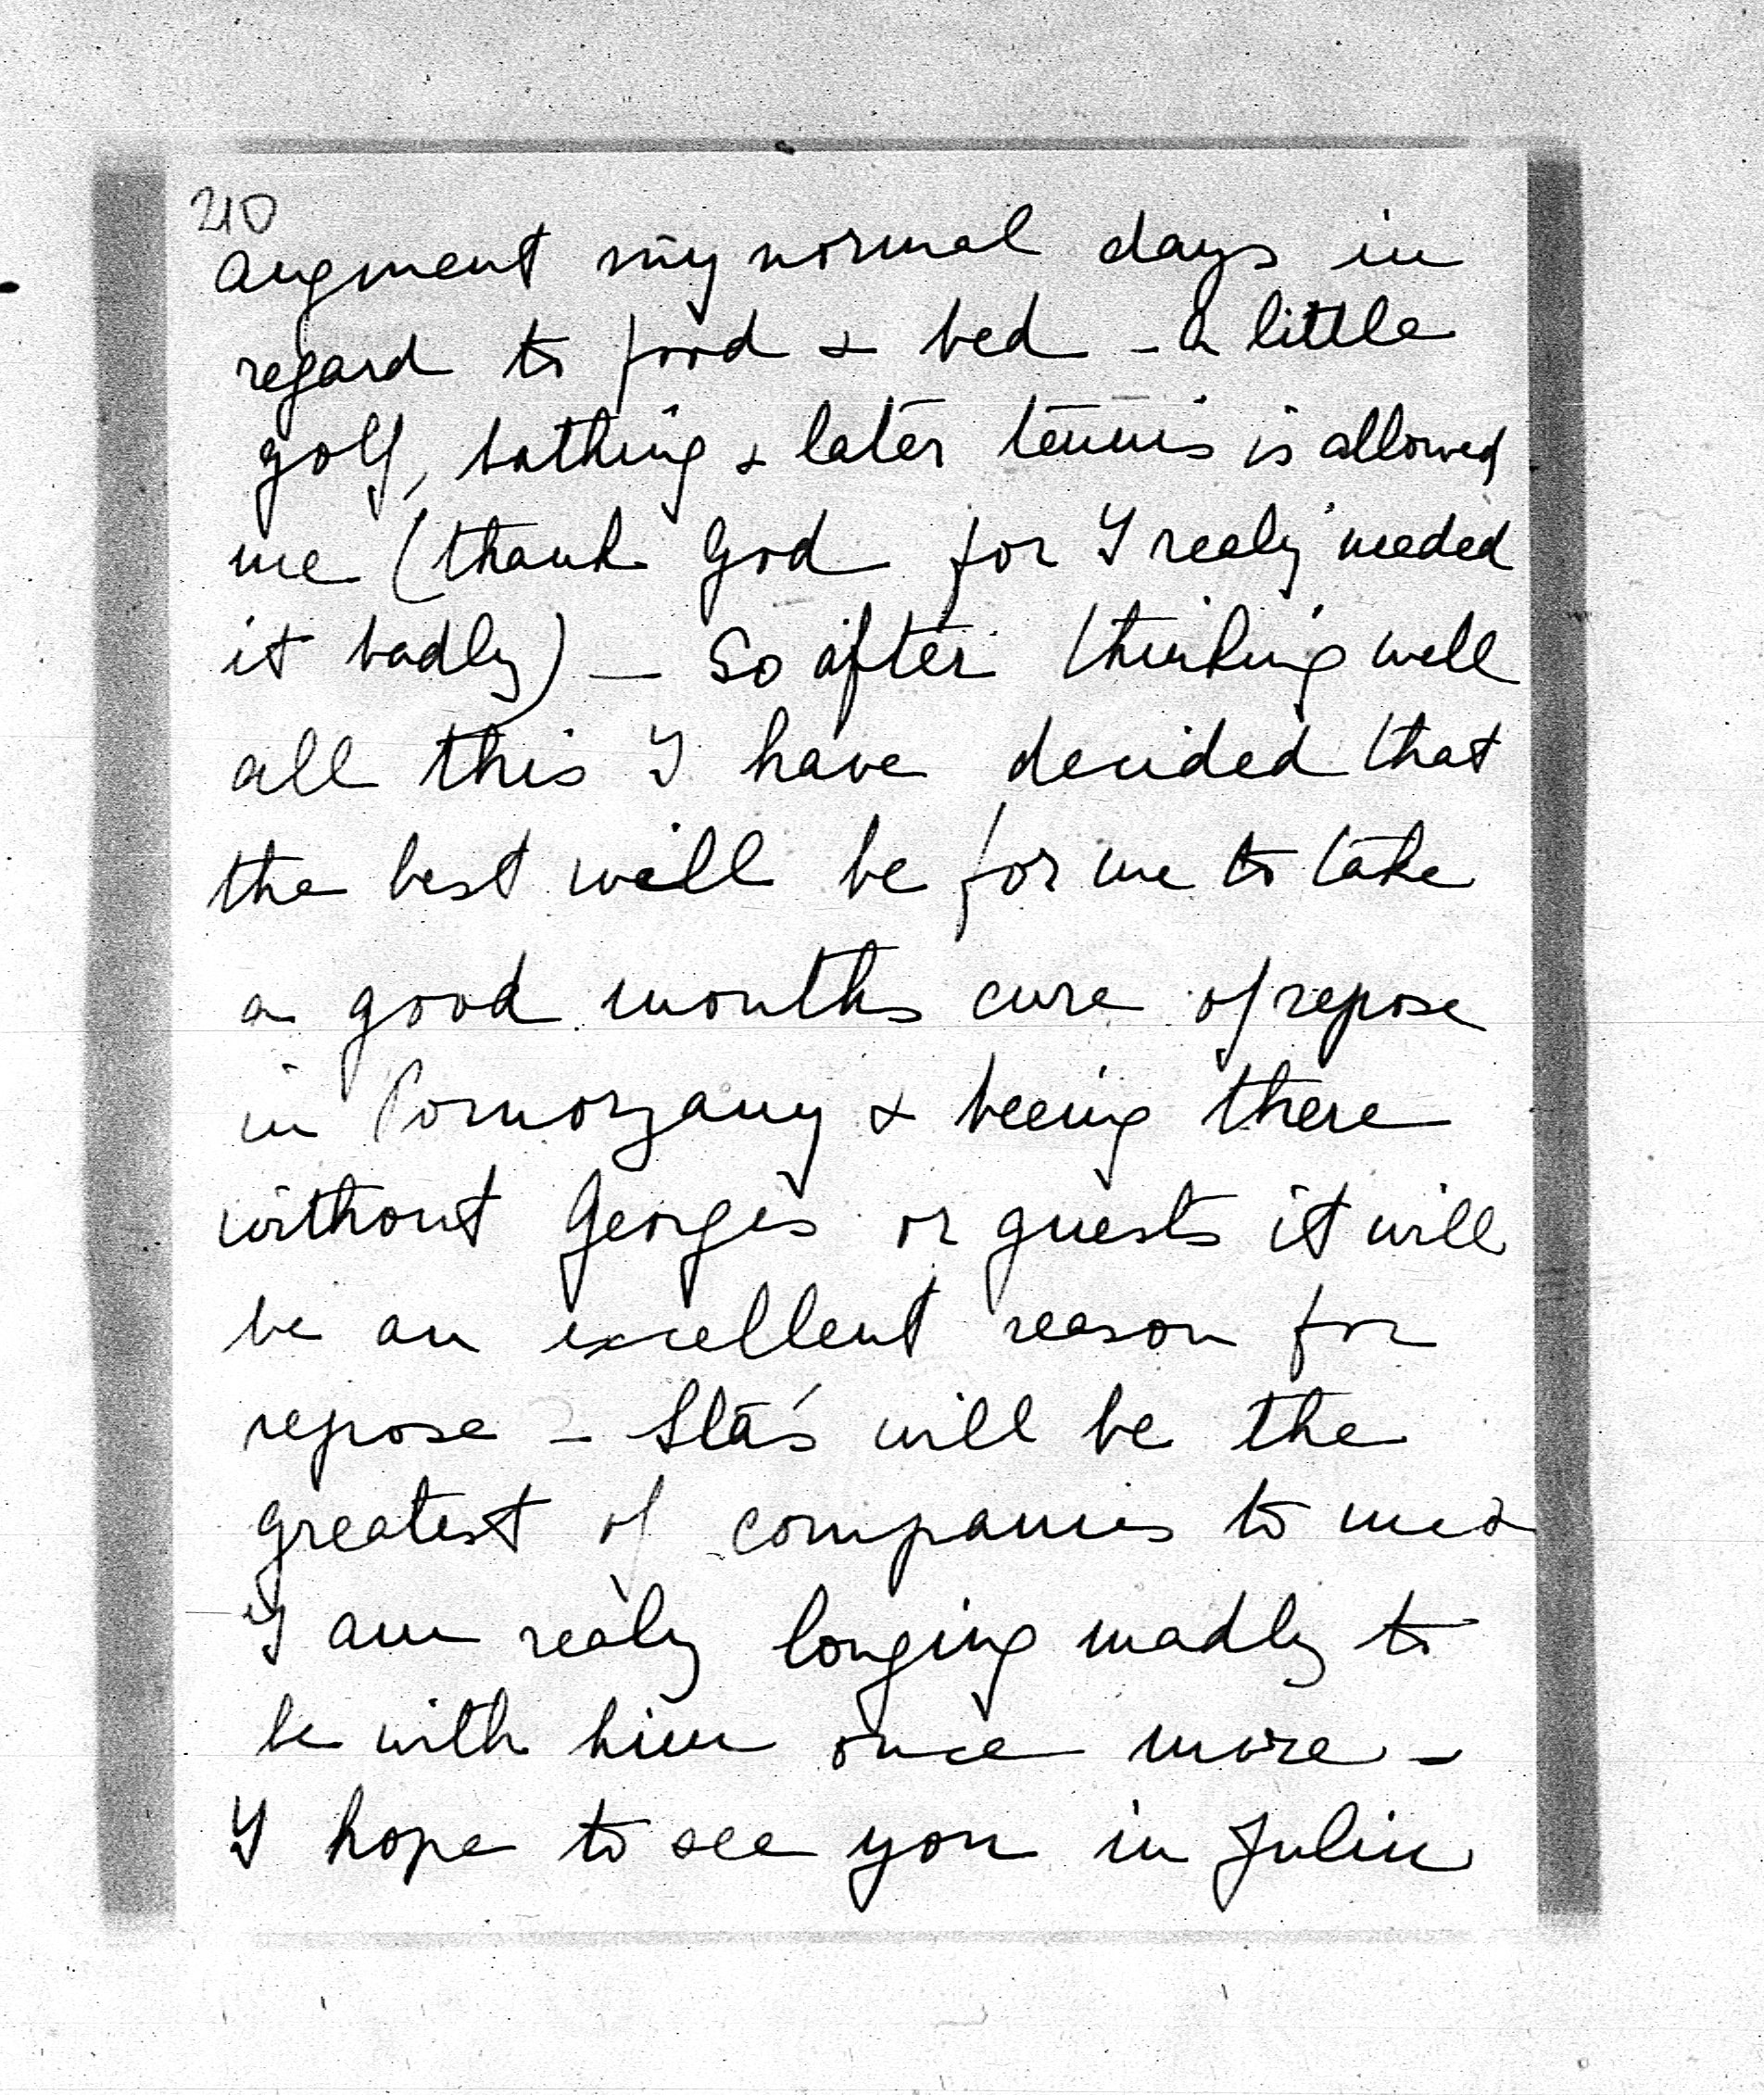 210
augment my normal days in
regard to food & bed - a little
golf, bathing & later tennis is allowed
me (thank God for I realy needed
it badly) - So after thinking well
all this I have decided that
the best will be for me to take
a good months cure of repose
in Pomorzany & beeing there
without Georges or guests it will
be an excellent reason for
repose - Staś will be the
greatest of companies to me &
I am realy longing madly to
be with him once more -
I hope to see you in Julin